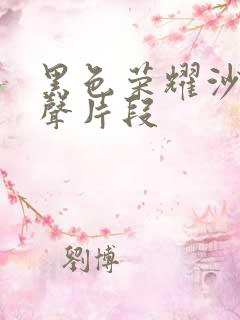 黑色荣耀沙
聲片段
劉博